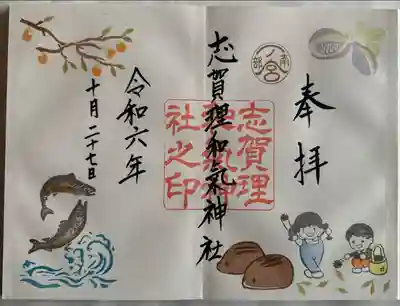 奉拝
一ノ宮
南部
志賀理和氣神社
志賀理
和氣神
社之印
令和六年
十月二十七日